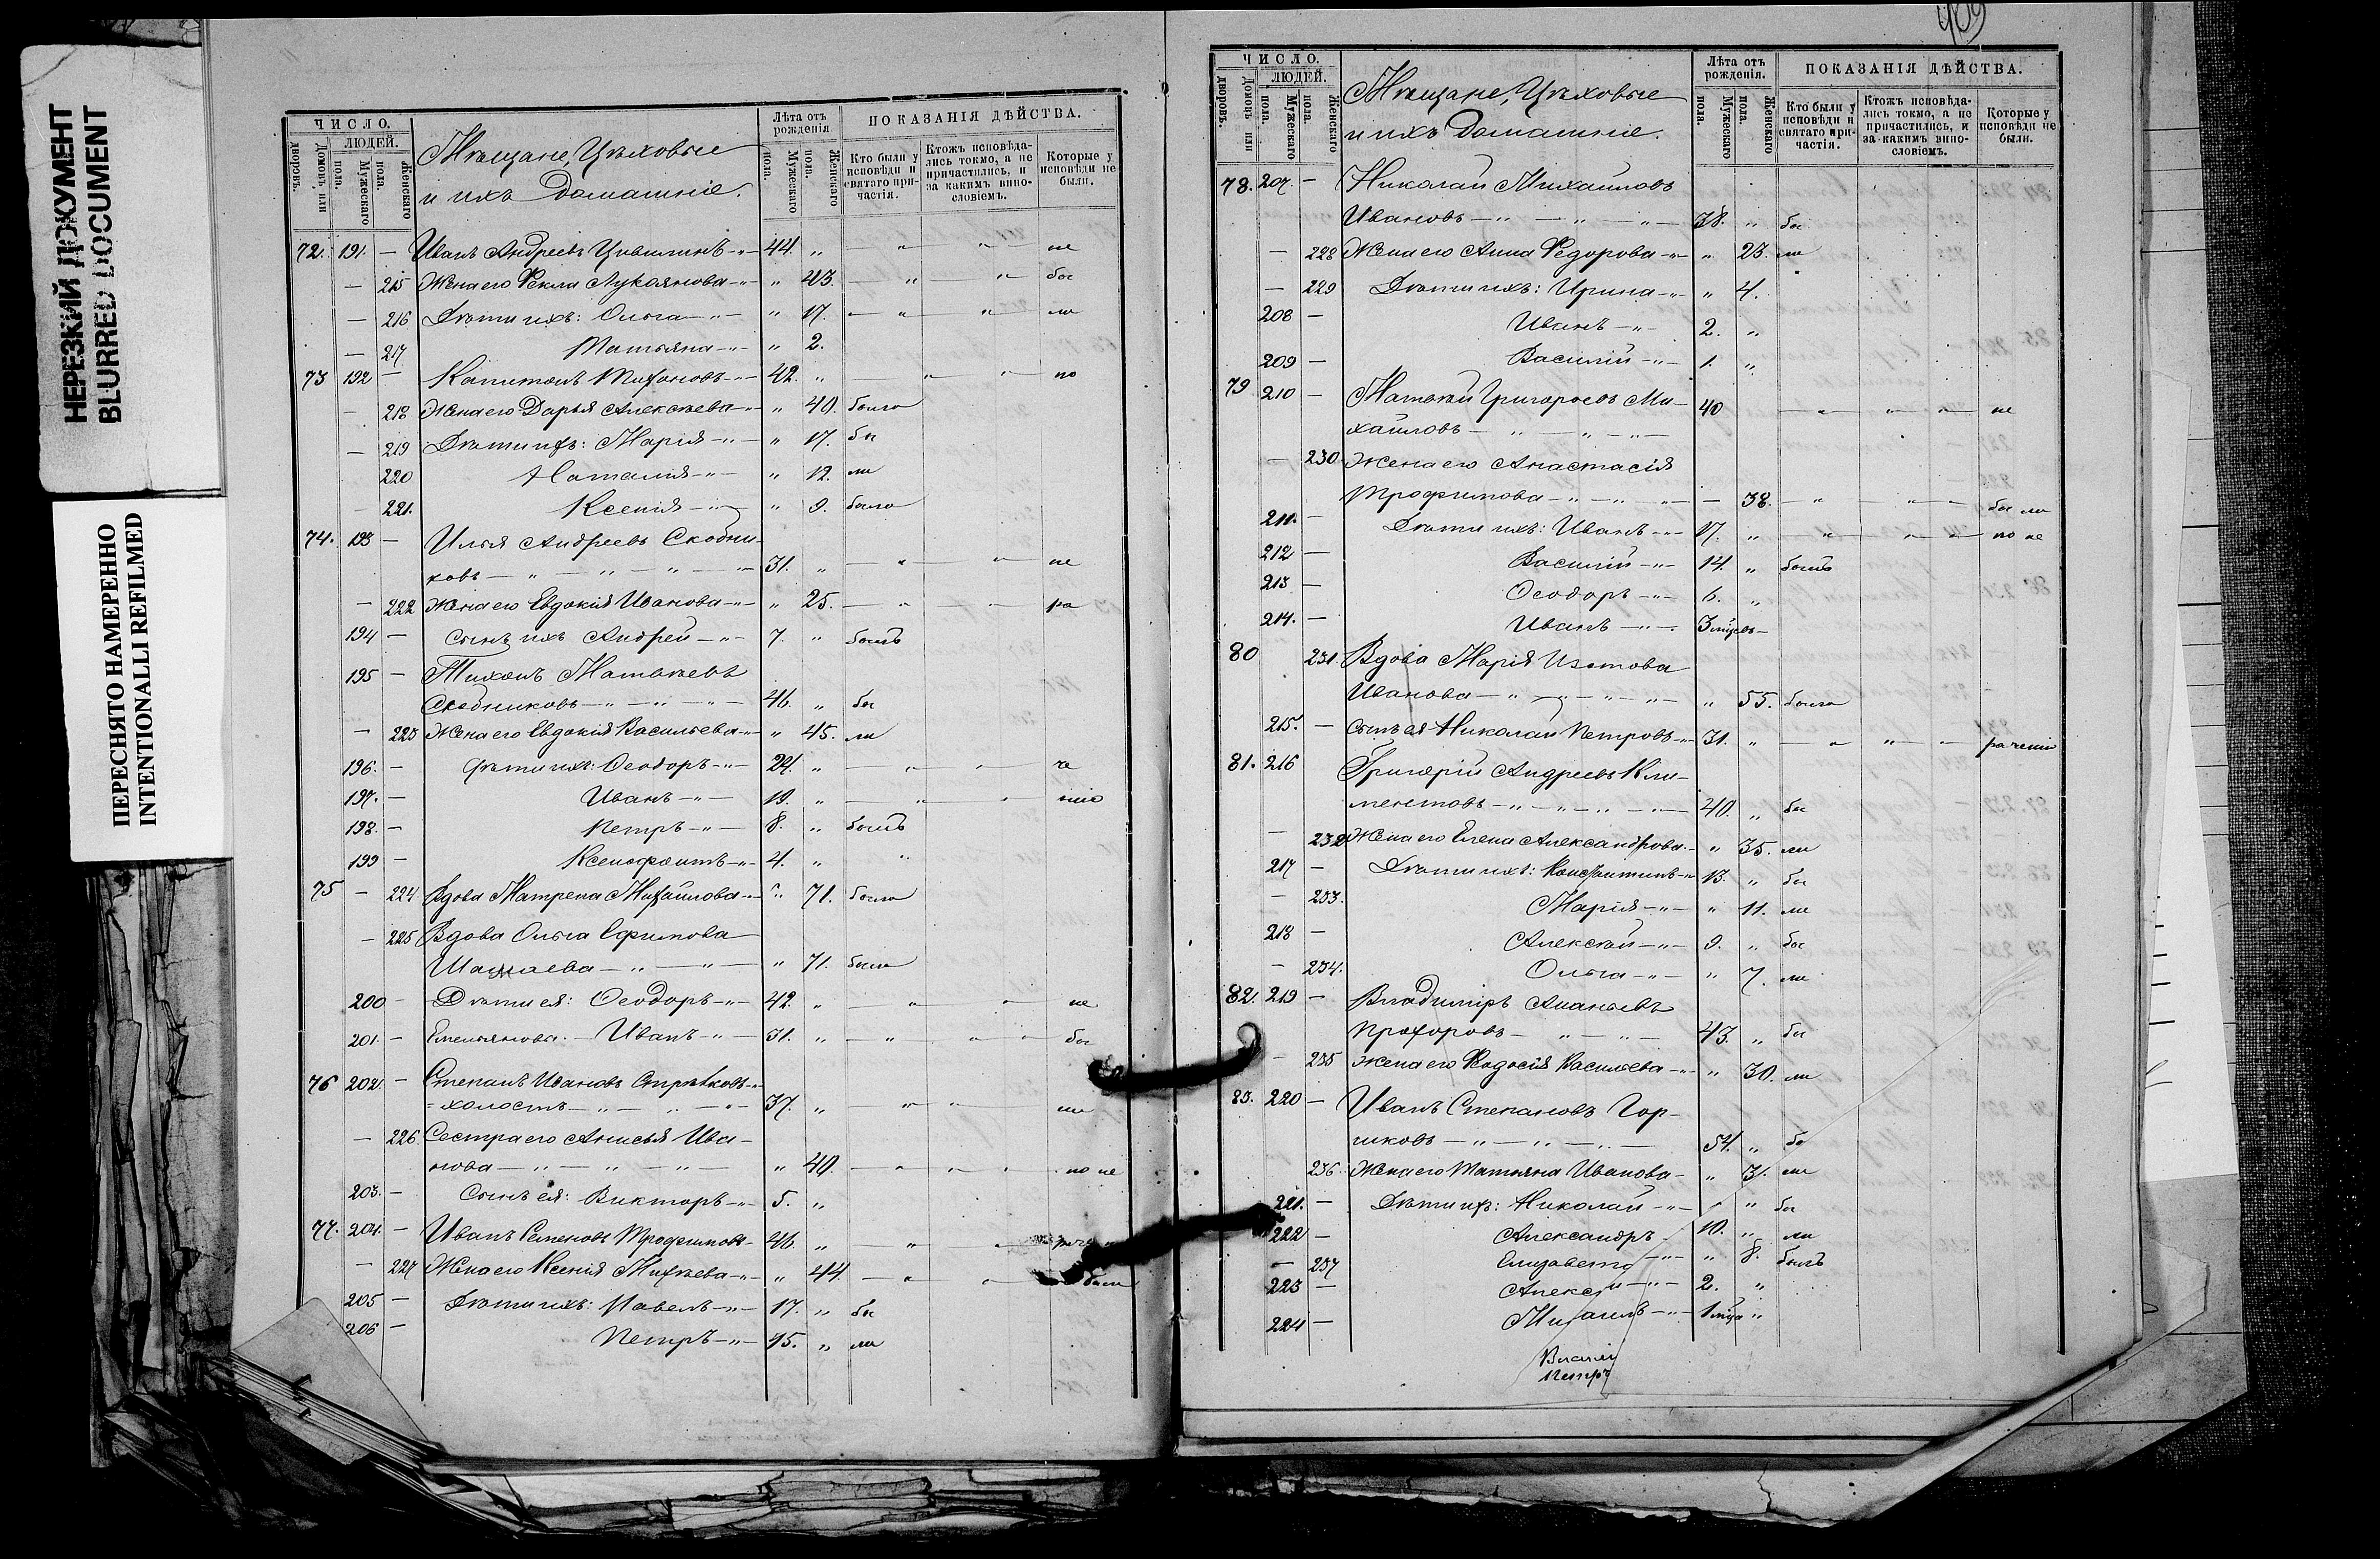 НЕРЕЗКИЙ ДОКУМЕНТ
BLURRED DOCUMENT
ПЕРЕСНЯТО НАМЕРЕННО
INTENTIONALLI REFILMED
ЧИСЛО.
ЛЮДЕЙ.
Домовъ или дворовъ.
Мужескаго пола.
Женскаго пола.
Мѣщане, Цѣховые
и ихъ домашніе.
Лѣта отъ рожденія
Мужескаго пола.
Женскаго пола.
ПОКАЗАНІЯ ДѢЙСТВА.
Кто были у исповѣди и святаго причастія.
Ктожъ исповѣдались токмо, а не причастились, и за какимъ винословіемъ.
Которые у исповѣди не были.
72. 191. — Иванъ Андреевъ Цивилинъ 44. " не
— 215 Жена его Фекла Лукоянова " 43. бы
— 216 Дѣти ихъ: Ольга " 17. ли
— 217 Татьяна " 2.
73 192 — Капитонъ Тихоновъ 42. " по
— 218 Жена его Дарья Алексѣева " 40. была
— 219 Дѣти ихъ: Марія " 17. бы
220 Наталія " 12. ли
— 221. Ксенія " 9. была
74. 193 — Илья Андреевъ Скобни-
ковъ 31. " не
— 222 Жена его Евдокія Иванова " 25. ра
194 — Сынъ ихъ Андрей 7. " былъ
195 — Тихонъ Матвѣевъ
Скобниковъ 46. " бы
— 223 Жена его Евдокія Васильева " 45. ли
196. — Дѣти ихъ: Ѳеодоръ 24. " че
197. — Иванъ 19. " нію
198. — Петръ 8. " былъ
199 — Ксенофонтъ 4. " "
75 — 224 Вдова Матрена Михайлова " 71. была
— 225 Вдова Ольга Ефимова
" 71. была
200 — Дѣти ея: Ѳеодоръ 42. " не
201. — Емельяновы. Иванъ 31. " бы
76 202. — Степанъ Ивановъ Стрѣлковъ
холостъ 37. " ли
— 226. Сестра его Анисья Ива-
нова " 40. по не
203. — Сынъ ея: Викторъ 5. "
77. 204. — Иванъ Семеновъ Трофимовъ 46. "
— 227 Жена его Ксенія Михѣева " 44. были
205 — Дѣти ихъ: Павелъ 17. " бы
206 — Петръ 15. " ли
409
ЧИСЛО.
ЛЮДЕЙ.
Домовъ или дворовъ.
Мужескаго пола.
Женскаго пола.
Мѣщане, Цѣховые
и ихъ домашніе.
Лѣта отъ рожденія.
Мужескаго пола.
Женскаго пола.
ПОКАЗАНІЯ ДѢЙСТВА.
Кто были у исповѣди и святаго причастія.
Ктожъ исповѣдались токмо, а не причастились, и за какимъ винословіемъ.
Которые у исповѣди не были.
78. 207. — Николай Михайловъ
Ивановъ 38. " бы
— 228 Жена его Анна Ѳедорова " 23. ли
— 229 Дѣти ихъ: Ирина " 4.
208 — Иванъ 2. "
209 — Василій 1. "
79 210 — Матвѣй Григорьевъ Ми-
хайловъ 40 не
— 230. Жена его Анастасія
Трофимова — 38. бы ли
211. — Дѣти ихъ: Иванъ 17. " по не
212 — Василій 14. " былъ
213 — Ѳеодоръ 6. "
214. — Иванъ 3 мѣсѣ.
80 231. Вдова Марія Изотова
Иванова " 55. была
215. — Сынъ ея Николай Петровъ 31. " раченію
81. 216 Григорій Андреевъ Кли-
ментовъ 40. " бы
— 232 Жена его Елена Александрова " 35. ли
217 — Дѣти ихъ: Константинъ 13. " бы
— 233. Марія " 11. ли
218 — Алексѣй 9. " бы
— 234. Ольга " 7. ли
82. 219 — Владиміръ Ананьевъ
Прохоровъ 43. " бы
— 235 Жена его Ѳедосія Васильева " 30. ли
83. 220 — Иванъ Степановъ Гор-
шковъ 54. " бы
236. Жена его Татьяна Иванова " 31. ли
221. — Дѣти ихъ: Николай " бы
222 — Александръ 10. " ли
— 237 Елизавета " 8. былъ
223 — Алексѣй 2. "
224 — Михаилъ 1 мѣся "
Василій
Петръ